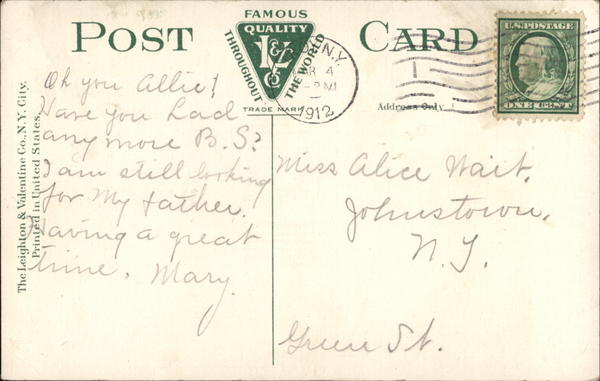 FAMOUS
POST CARD
QUALITY
THROUGHOUT THE WORLD
L&V Co
TRADE MARK
N.Y.
MAR 4
PM
1912
U.S. POSTAGE
ONE CENT
Address Only
The Leighton & Valentine Co., N.Y. City.
Printed in United States.
Oh you Allie!
Have you had
any more B.S?
I am still looking
for my father.
Having a great
time. Mary.
Miss Alice Wait.
Johnstown,
N.Y.
Green St.